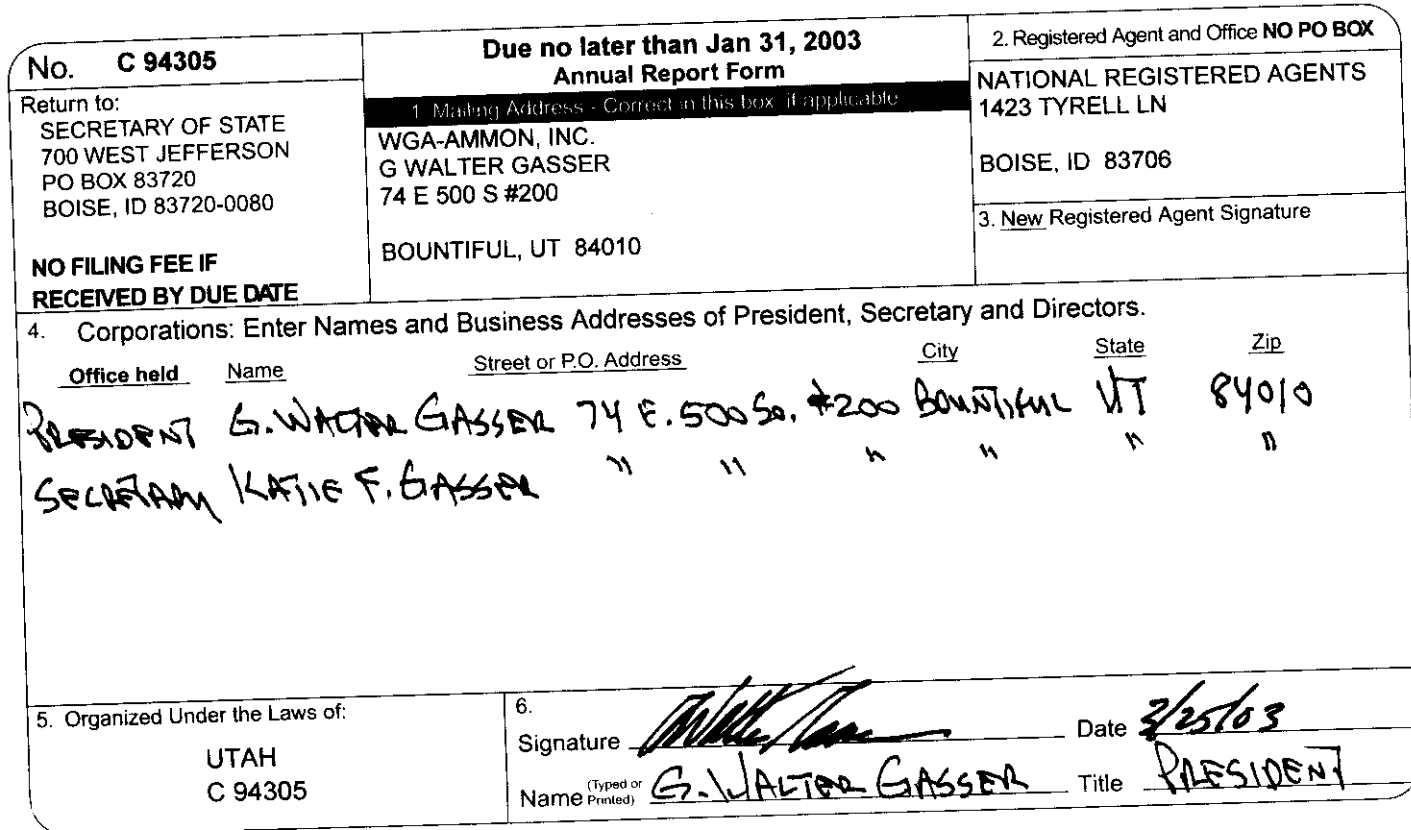 No. C 94305
Return to:
SECRETARY OF STATE
700 WEST JEFFERSON
PO BOX 83720
BOISE, ID 83720-0080
NO FILING FEE IF
RECEIVED BY DUE DATE
Due no later than Jan 31, 2003
Annual Report Form
1. Mailing Address - Correct in this box if applicable
WGA-AMMON, INC.
G WALTER GASSER
74 E 500 S #200
BOUNTIFUL, UT 84010
2. Registered Agent and Office NO PO BOX
NATIONAL REGISTERED AGENTS
1423 TYRELL LN
BOISE, ID 83706
3. New Registered Agent Signature
4. Corporations: Enter Names and Business Addresses of President, Secretary and Directors.
Office held Name Street or P.O. Address City State Zip
PRESIDENT G. WALTER GASSER 74 E. 500 So. #200 BOUNTIFUL UT 84010
SECRETARY KATIE F. GASSER " " " " " "
5. Organized Under the Laws of:
UTAH
C 94305
6.
Signature Date /25/03
Name (Typed or Printed) G. WALTER GASSER Title PRESIDENT